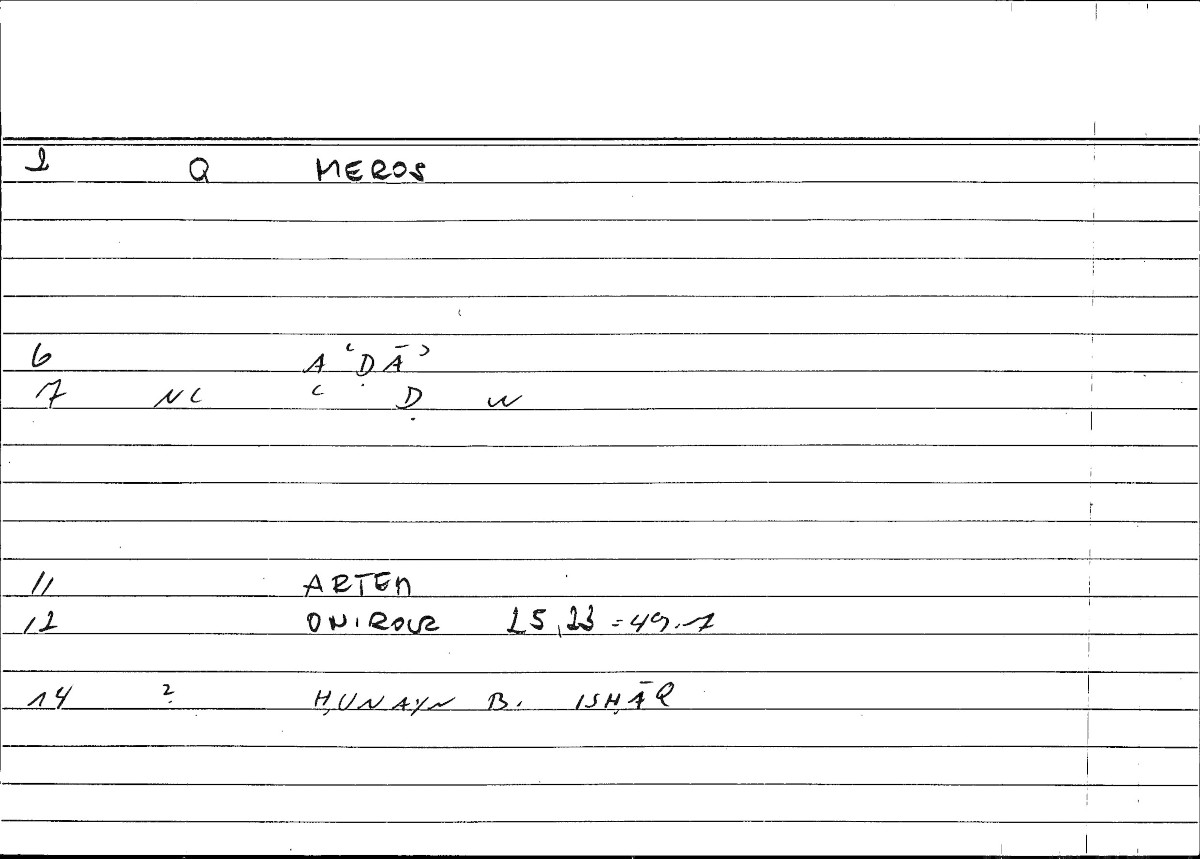 2 Q MEROS
6 AʿḌĀʾ
7 NC ʿ Ḍ W
11 ARTEM
12 ONIROCR 25,23 = 49.7
14 ? ḤUNAYN B. ISḤĀQ